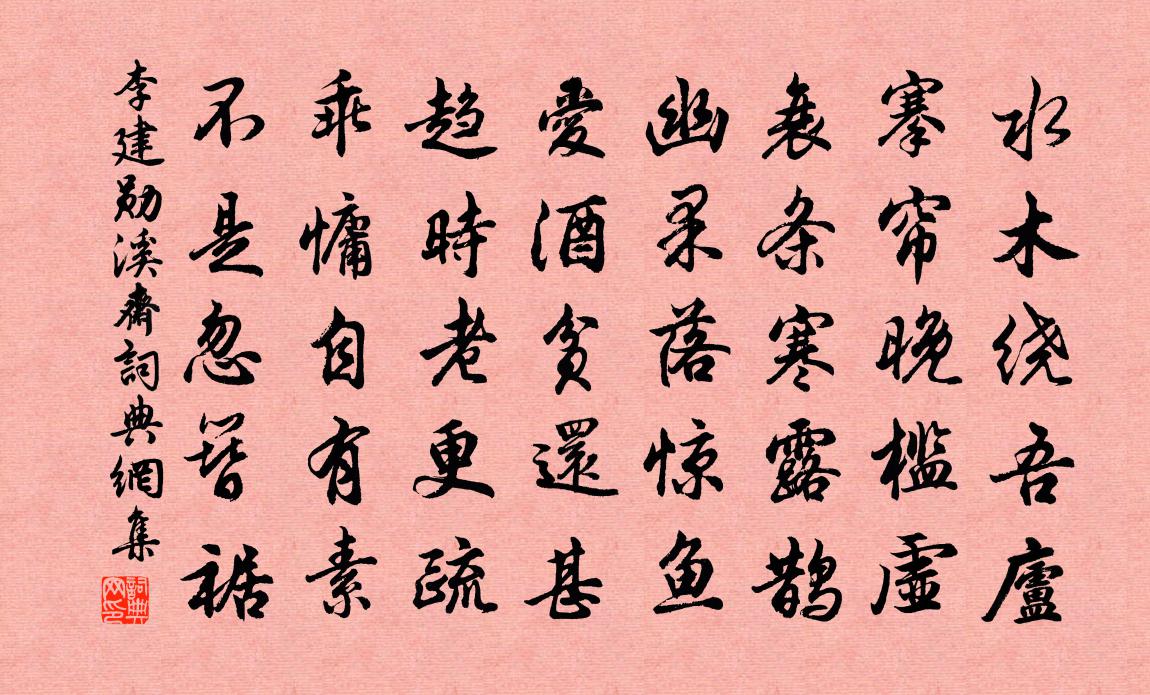 水木绕吾廬
搴帘晚槛虚
衰条寒露鹊
幽果落惊鱼
愛酒贫還甚
趋時老更疏
乖慵自有素
不是忽簪裾
李建勋溪齋詞典網集
詞典网印